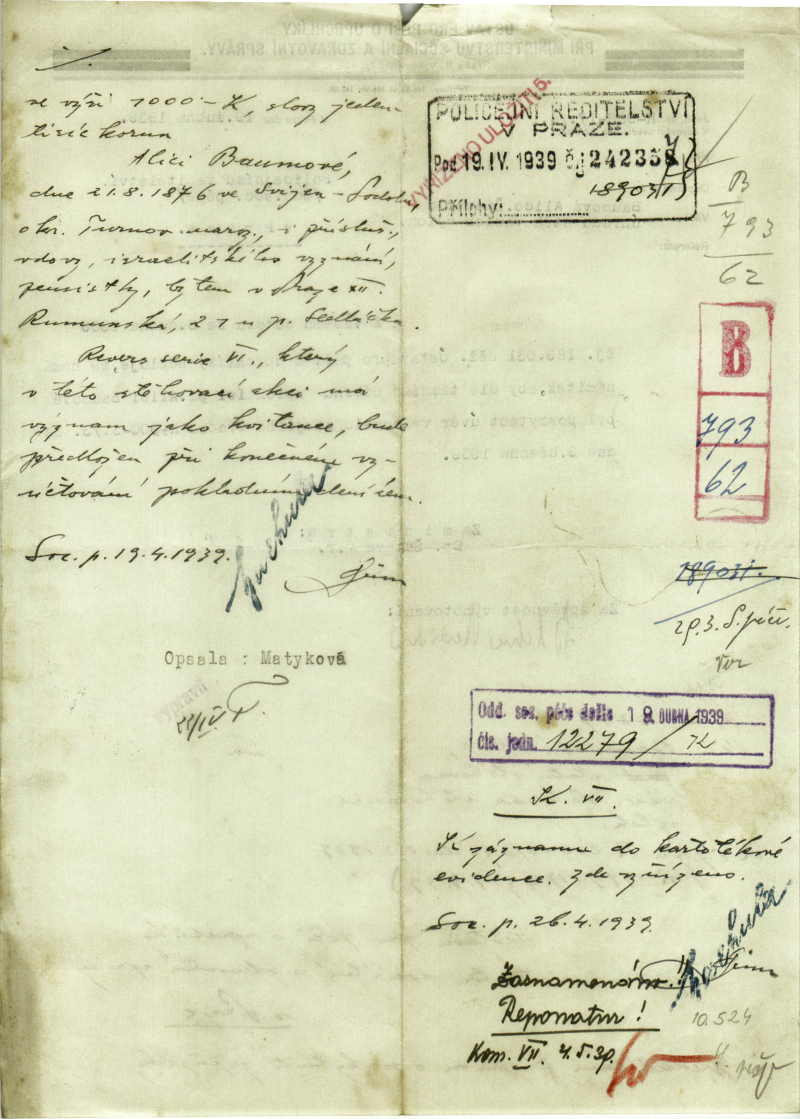 ve výši 1000.- K, slovy jeden
tisíc korun
Alici Baumové,
dne 21.8.1876 ve Svijan-Podolí,
okr. Turnov naroz., i přísluš.,
vdovy, israelitského vyznání,
pensistky, bytem v Praze XII.
Rumunská, 21 u p. Sedláčka.
Revers serie VI., který
v této stěhovací akci má
význam jako kvitance, bude
předložen při konečném vy-
účtování pokladním deníčem.
Soc. p. 19.4.1939.
Opsala : Matyková
22/IV
POLICEJNÍ ŘEDITELSTVÍ
V PRAZE.
Pod. 19. IV. 1939 Č.j. 242358
18903/15
Přílohy:
VYŘÍZENO ULOŽITI
B
793
62
B
793
62
18903/.
29.3. S. péči.
Odd. soc. péče došlo 19 DUBNA 1939
čís. jedn. 12279/72
K. VII.
K záznamu do kartotékové
evidence. Zde vyřízeno.
Soc. p. 26.4.1939.
Zaznamenáno!
Reponatur!
10.524
Kom. VII. 4.5.39.